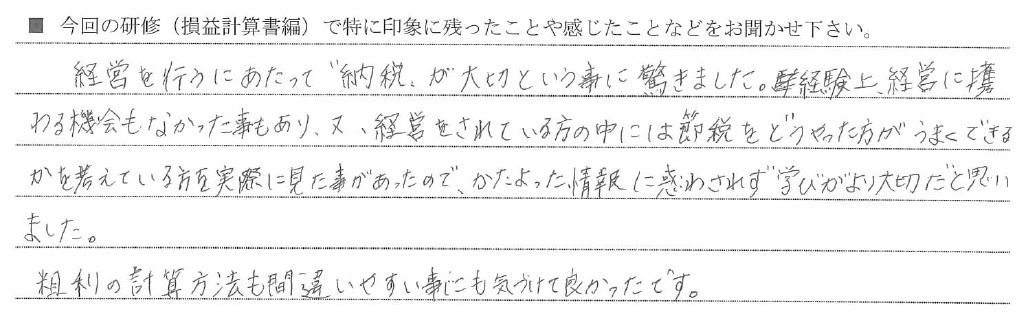 ■ 今回の研修（損益計算書編）で特に印象に残ったことや感じたことなどをお聞かせ下さい。
経営を行うにあたって“納税„が大切という事に驚きました。経験上、経営に携
わる機会もなかった事もあり、又、経営をされている方の中には節税をどうやった方がうまくできる
かを考えている方を実際に見た事があったので、かたよった情報に惑わされず学びがより大切だと思い
ました。
粗利の計算方法も間違いやすい事にも気づけて良かったです。